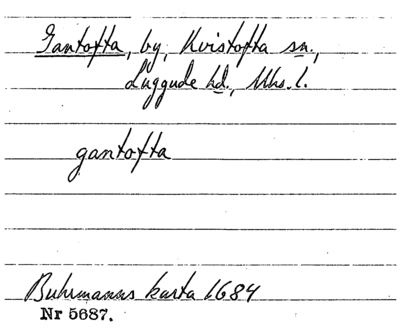 Gantofta, by, Kvistofta sn.,
Luggude hd., Mhs. l.
gantofta
Buhrmanns karta 1684
Nr 5687.